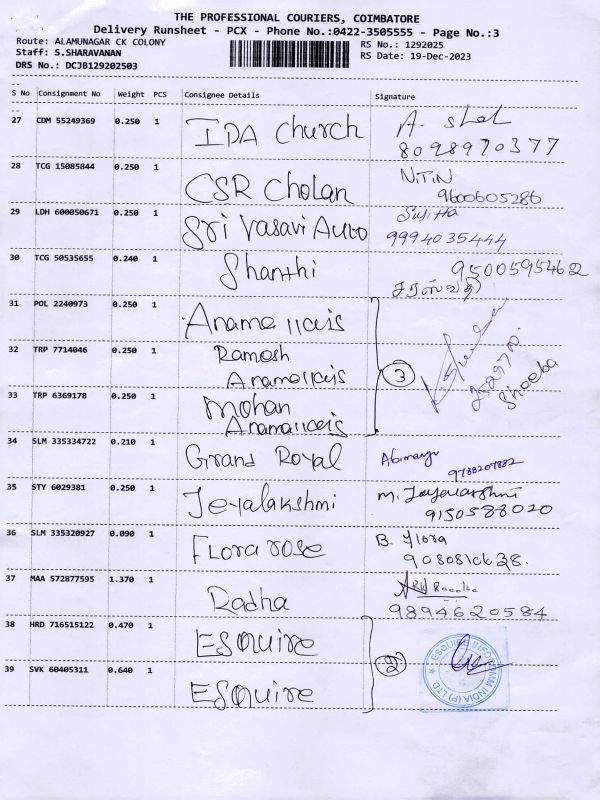 THE PROFESSIONAL COURIERS, COIMBATORE
Delivery Runsheet - PCX - Phone No.:0422-3505555 - Page No.:3
Route: ALAMUNAGAR CK COLONY
Staff: S.SHARAVANAN
DRS No.: DCJB129202503
RS No.: 1292025
RS Date: 19-Dec-2023
S No Consignment No Weight PCS Consignee Details Signature
27 CDM 55249369 0.250 1 IDA Church A.
8098970377
28 TCG 15085844 0.250 1 CSR Cholan NITIN
9600605286
29 LDH 600050671 0.250 1 Sri Vasavi Auto Sujitha
9994035444
30 TCG 50535655 0.240 1 Shanthi 9500595462
சரஸ்வதி
31 POL 2240973 0.250 1 Anamallais
32 TRP 7714046 0.250 1 Ramesh
Anamallais
3
Sheeba
33 TRP 6369178 0.250 1 Mohan
Anamallais
34 SLM 335334722 0.210 1 Grand Royal Abimanyu
9788207882
35 STY 6029381 0.250 1 Jeyalakshmi M. Jayalakshmi
9150588020
36 SLM 335320927 0.090 1 Flora rose B. Flora
9080810638.
37 MAA 572877595 1.370 1 Radha
9894620584
38 HRD 716515122 0.470 1 ESquire
2
ESQUIRE INFOCOMM INDIA (P) LTD
39 SVK 60405311 0.640 1 ESquire